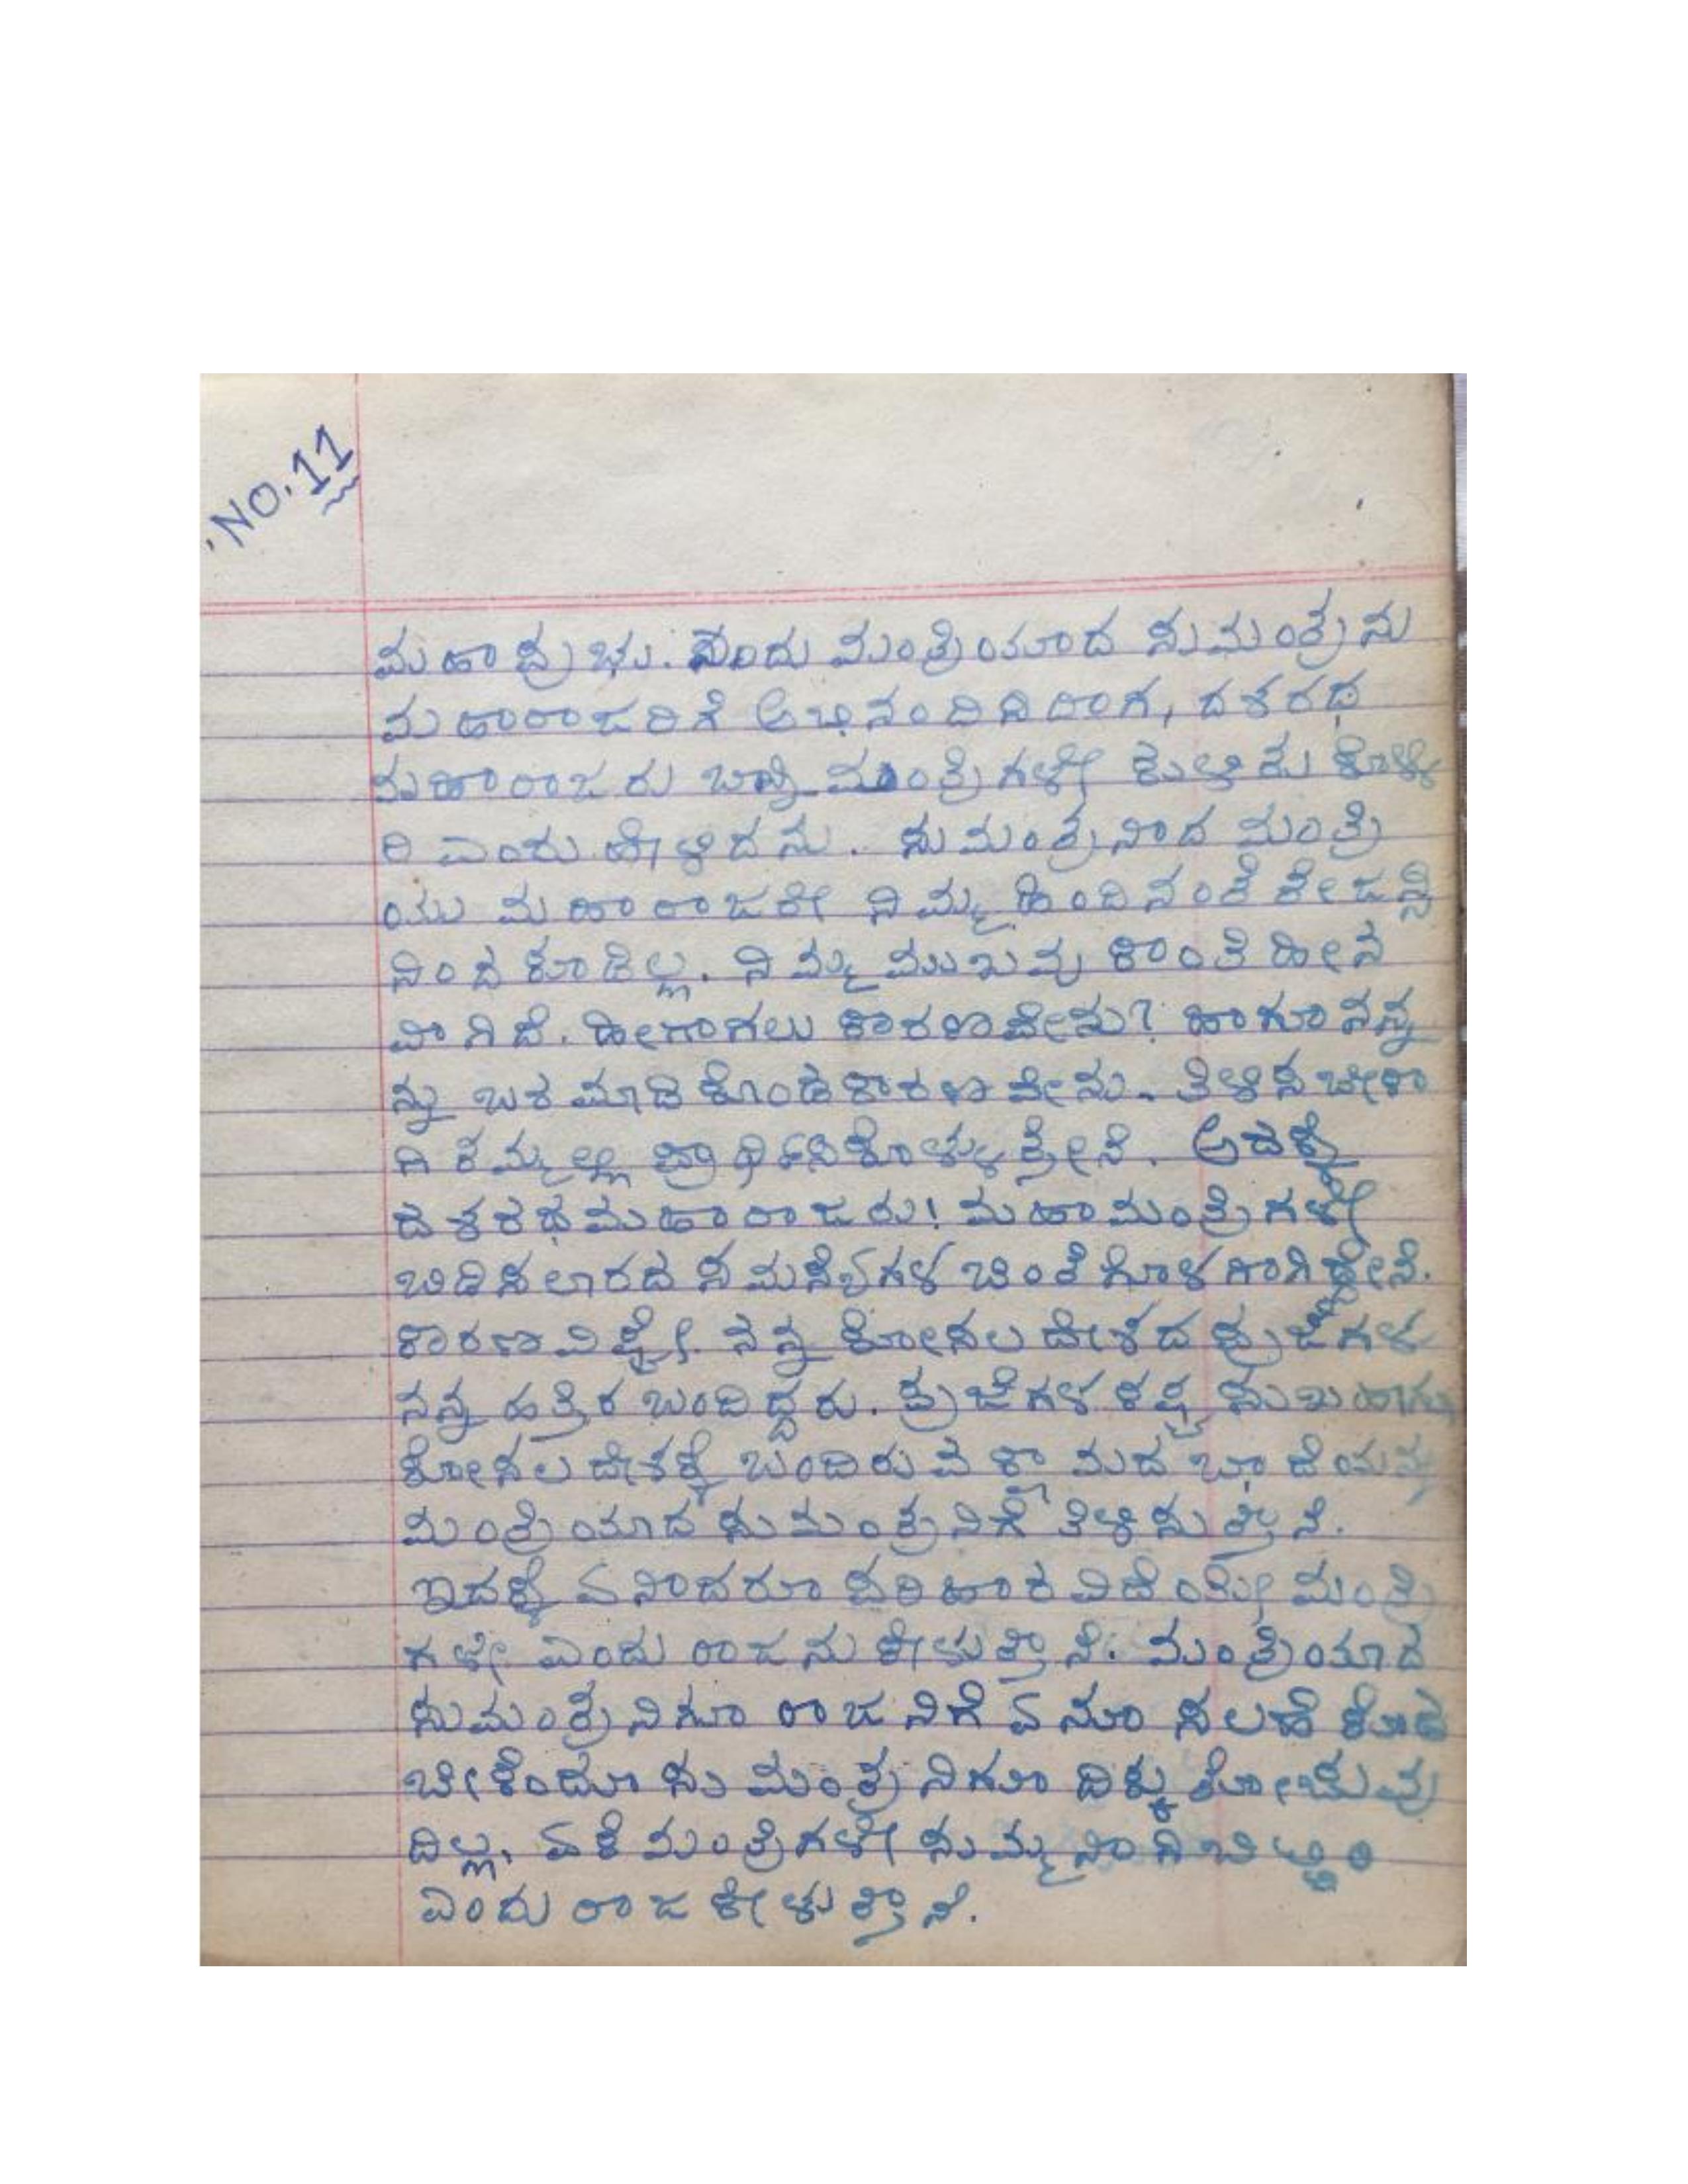 NO. 11
ಮಹಾಪ್ರಭು. ಎಂದು ಮಂತ್ರಿಯಾದ ಸುಮಂತ್ರನು
ಮಹಾರಾಜರಿಗೆ ಅಭಿನಂದಿಸಿದಾಗ, ದಶರಥ
ಮಹಾರಾಜರು ಬನ್ನಿ ಮಂತ್ರಿಗಳೇ ಕುಳಿತುಕೊಳ್ಳಿ
ರಿ ಎಂದು ಹೇಳಿದನು. ಸುಮಂತ್ರನಾದ ಮಂತ್ರಿ
ಯು ಮಹಾರಾಜರೇ ನಿಮ್ಮ ಹಿಂದಿನಂತೆ ತೇಜಸ್ಸಿ
ನಿಂದ ಕೂಡಿಲ್ಲ. ನಿಮ್ಮ ಮುಖವು ಕಾಂತಿ ಹೀನ
ವಾಗಿದೆ. ಹೀಗಾಗಲು ಕಾರಣವೇನು? ಹಾಗೂ ನನ್ನ
ನ್ನು ಬರಮಾಡಿಕೊಂಡ ಕಾರಣವೇನು. ತಿಳಿಸಬೇಕಾ
ಗಿ ತಮ್ಮಲ್ಲಿ ಪ್ರಾರ್ಥಿಸಿಕೊಳ್ಳುತ್ತೇನೆ. ಅದಕ್ಕೆ
ದಶರಥ ಮಹಾರಾಜರು! ಮಹಾಮಂತ್ರಿಗಳೇ
ಬಿಡಿಸಲಾರದ ಸಮಸ್ಯೆಗಳ ಚಿಂತೆಗೊಳಗಾಗಿದ್ದೇನೆ.
ಕಾರಣವಿಷ್ಟೇ ನನ್ನ ಕೋಸಲ ದೇಶದ ಪ್ರಜೆಗಳು
ನನ್ನ ಹತ್ತಿರ ಬಂದಿದ್ದರು. ಪ್ರಜೆಗಳ ಕಷ್ಟ ಸುಖ ಹಾಗೂ
ಕೋಸಲ ದೇಶಕ್ಕೆ ಬಂದಿರುವ ಕ್ಷಾಮದ ಬಾಧೆಯನ್ನು
ಮಂತ್ರಿಯಾದ ಸುಮಂತ್ರನಿಗೆ ತಿಳಿಸುತ್ತಾನೆ.
ಇದಕ್ಕೆ ಏನಾದರೂ ಪರಿಹಾರ ವಿದೆಯೇ ಮಂತ್ರಿ
ಗಳೇ ಎಂದು ರಾಜನು ಕೇಳುತ್ತಾನೆ. ಮಂತ್ರಿಯಾದ
ಸುಮಂತ್ರನಿಗೂ ರಾಜನಿಗೆ ಏನೂ ಸಲಹೆ ಕೊಡ
ಬೇಕೆಂದೂ ಸುಮಂತ್ರನಿಗೂ ದಿಕ್ಕು ತೋಚುವು
ದಿಲ್ಲ. ಏಕೆ ಮಂತ್ರಿಗಳೇ ಸುಮ್ಮನಾಗಿಬಿಟ್ಟಿರಿ
ಎಂದು ರಾಜ ಕೇಳುತ್ತಾನೆ.